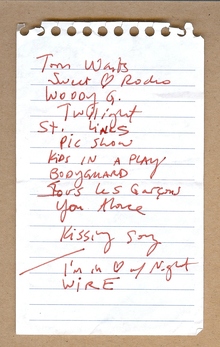 Tom Waits
Sweet ♡ Rodeo
Woody G.
Twilight
St.
Pic Show
Kids in a Play
Bodyguard
Tous les Garçon
You
Kissing Song
I'm in ♡ w/ Night
WIRE